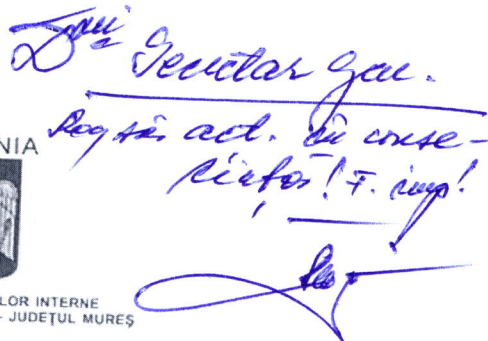 Dnei Secretar Gen.
Rog să act. în conse-
cință! F. imp!
NIA
LOR INTERNE
- JUDEȚUL MUREȘ